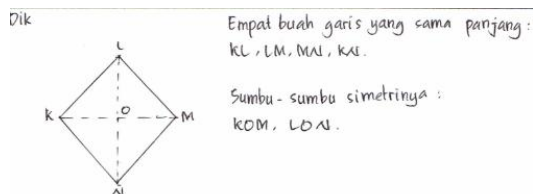 Dik
Empat buah garis yang sama panjang :
KL, LM, MN, KN.
L
Sumbu-sumbu simetrinya :
K
O
M
KOM, LON.
N